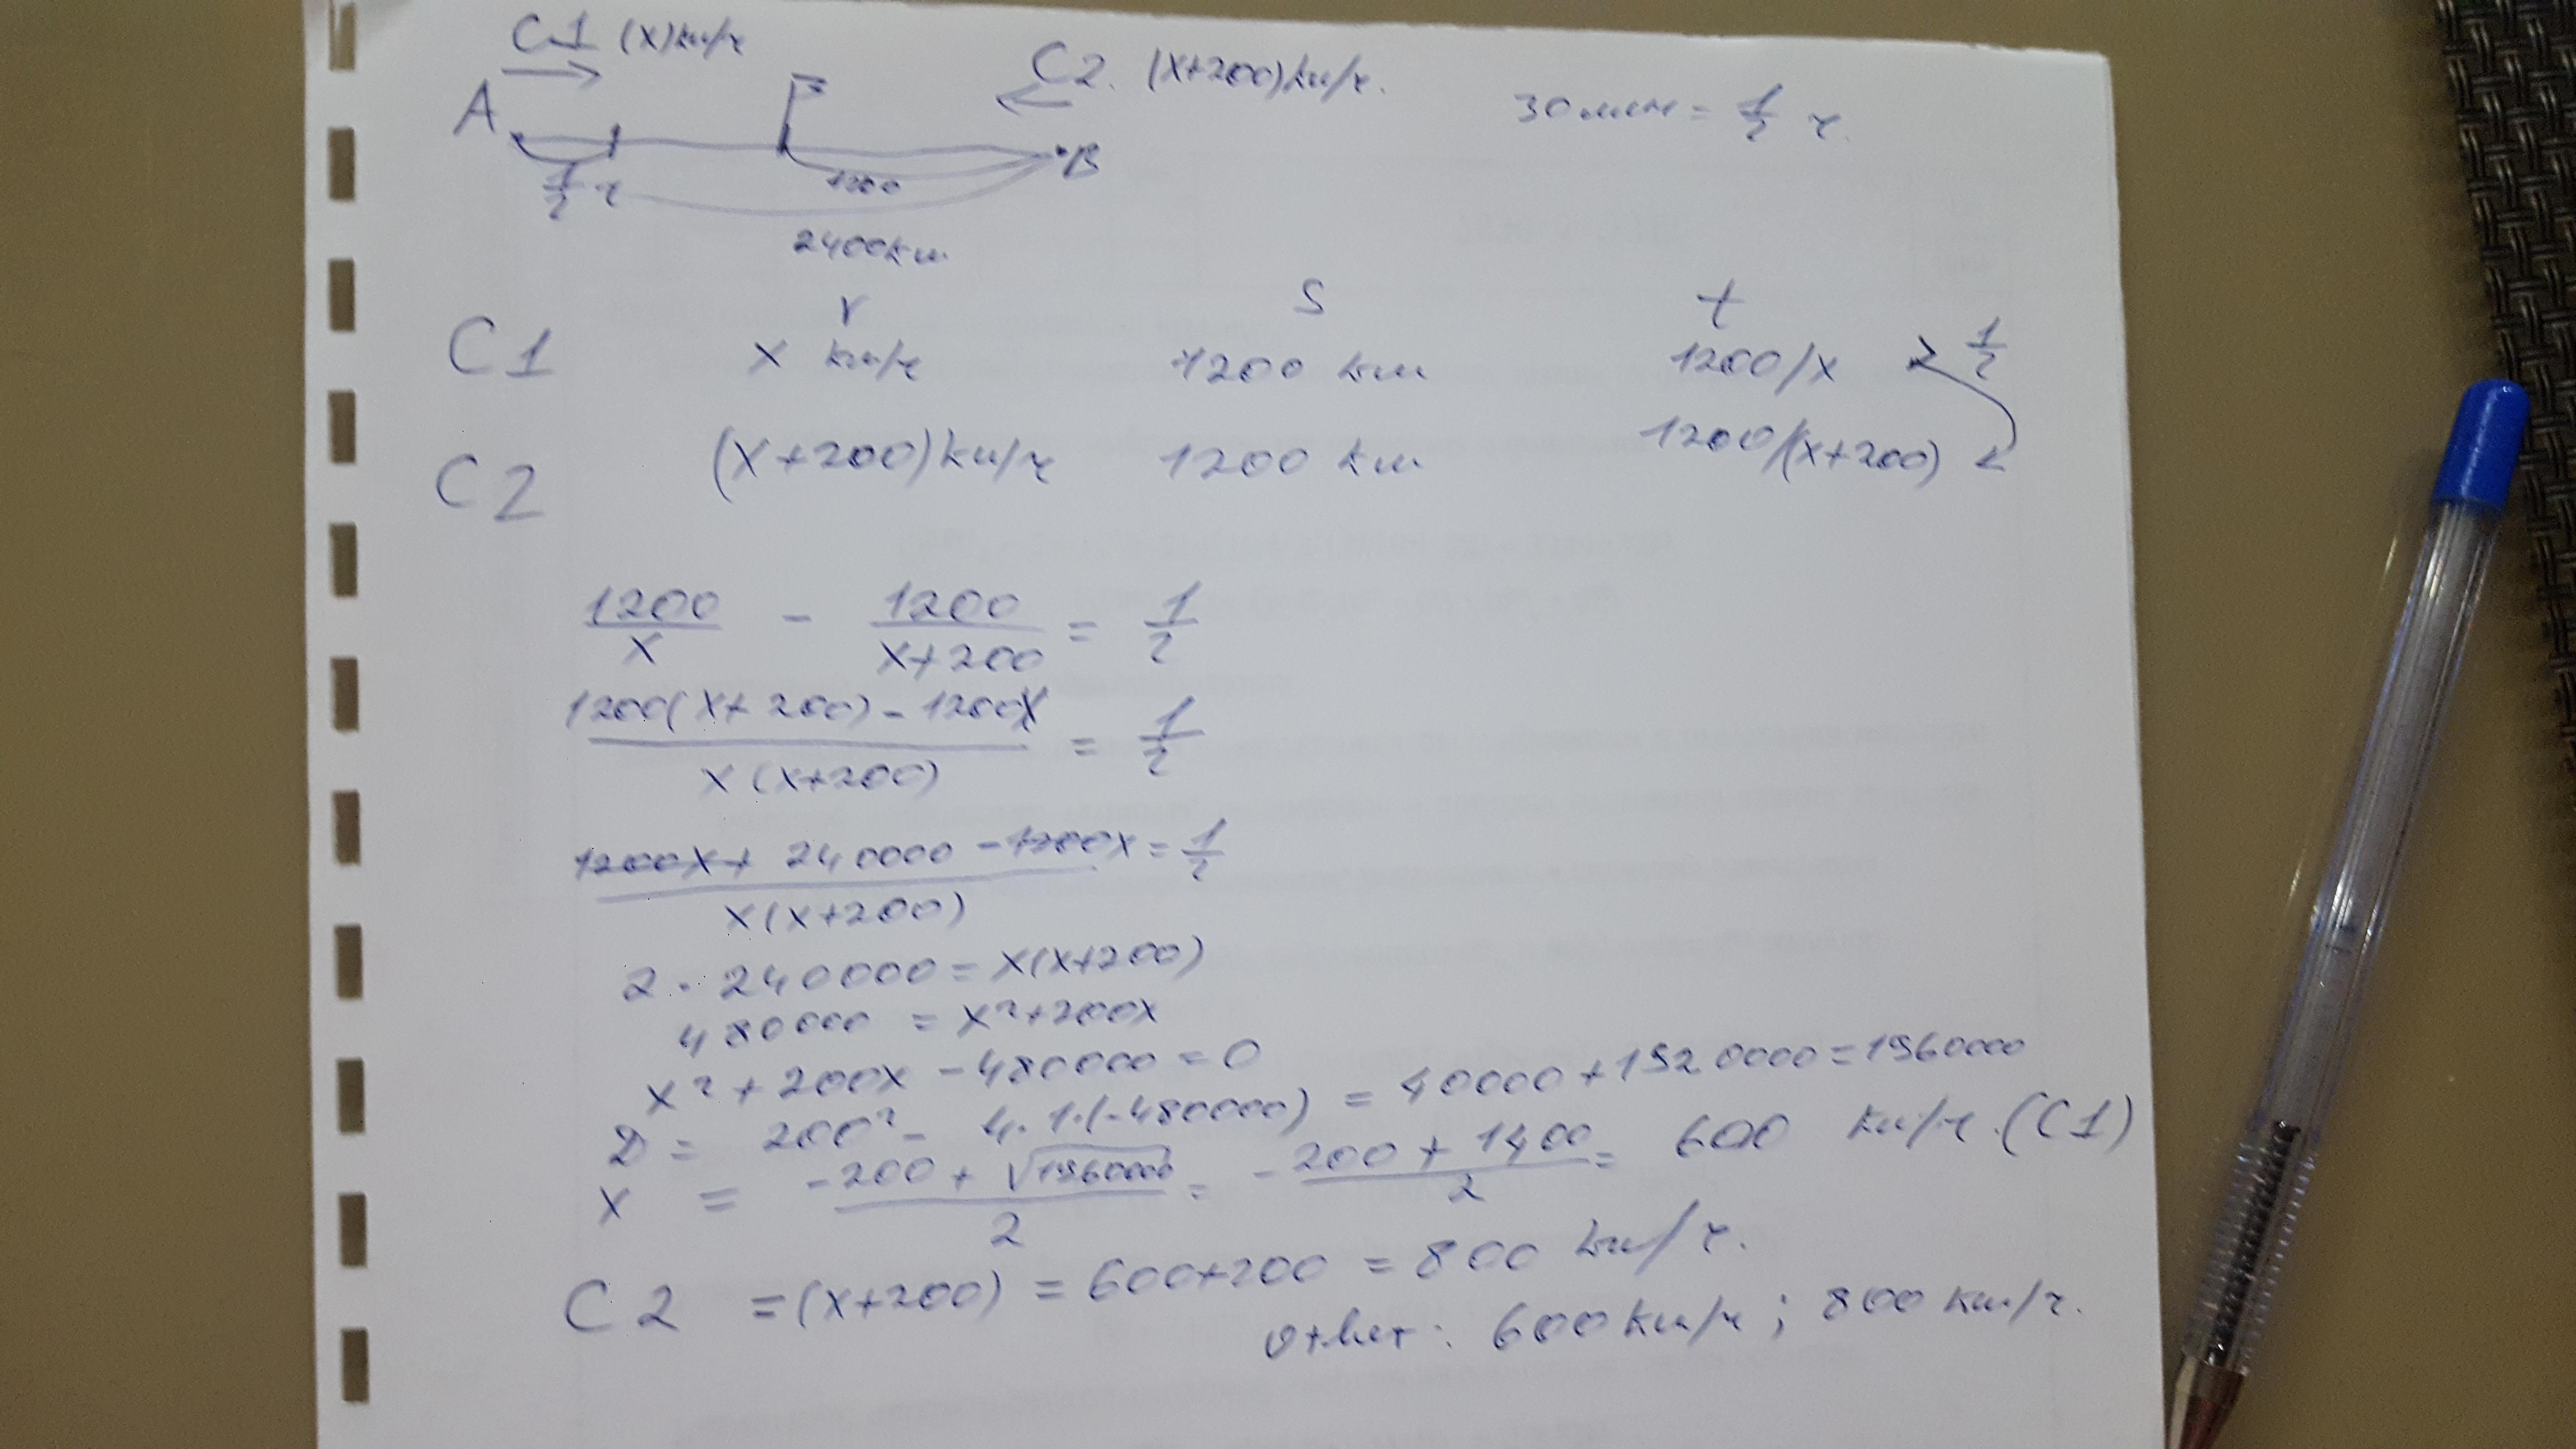 C1 (x) км/ч
C2. (x+200) км/ч.
30 мин = 1/2 ч.
A
B
1/2 ч
1200
2400 км
V S t
C1 x км/ч 1200 км 1200/x > 1/2
C2 (x+200) км/ч 1200 км 1200/(x+200) <
1200/x - 1200/(x+200) = 1/2
(1200(x+200) - 1200x)/(x(x+200)) = 1/2
(1200x + 240000 - 1200x)/(x(x+200)) = 1/2
2 · 240000 = x(x+200)
480000 = x²+200x
x² + 200x - 480000 = 0
D = 200² - 4·1·(-480000) = 40000 + 1920000 = 1960000
x = (-200 + √1960000)/2 = (-200 + 1400)/2 = 600 км/ч. (C1)
C2 = (x+200) = 600+200 = 800 км/ч.
Ответ: 600 км/ч ; 800 км/ч.